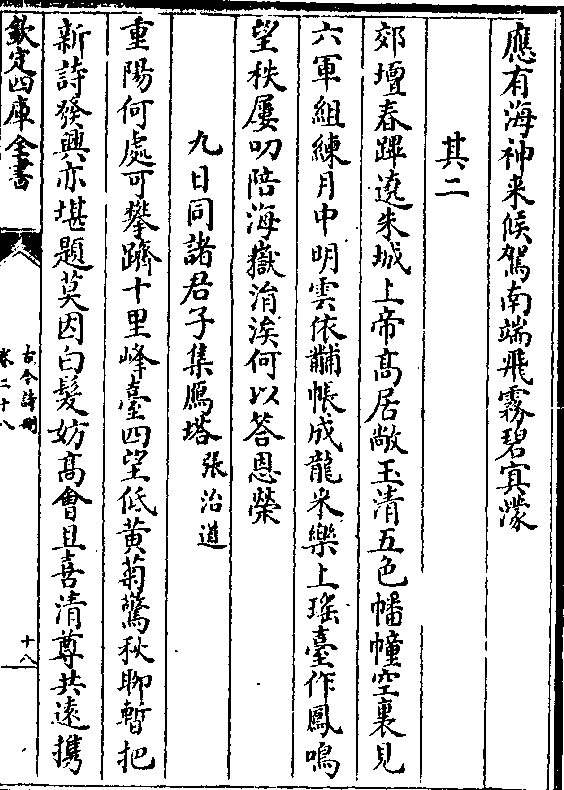 應有海神来候駕南端飛霧碧㝠濛
其二
郊壇春蹕遶朱城上帝髙居敞玉清五色幡幢空裏見
六軍組練月中明雲依黼帳成龍采樂上瑶臺作鳳鳴
望秩屢叨陪海嶽涓涘何以答恩榮
九日同諸君子集鴈塔 張治道
重陽何處可攀躋十里峰臺四望低黄菊驚秋聊暫把
新詩發興亦堪題莫因白髮妨髙會且喜清尊共遠携
欽定四庫全書
古今詩刪
卷二十八
十八